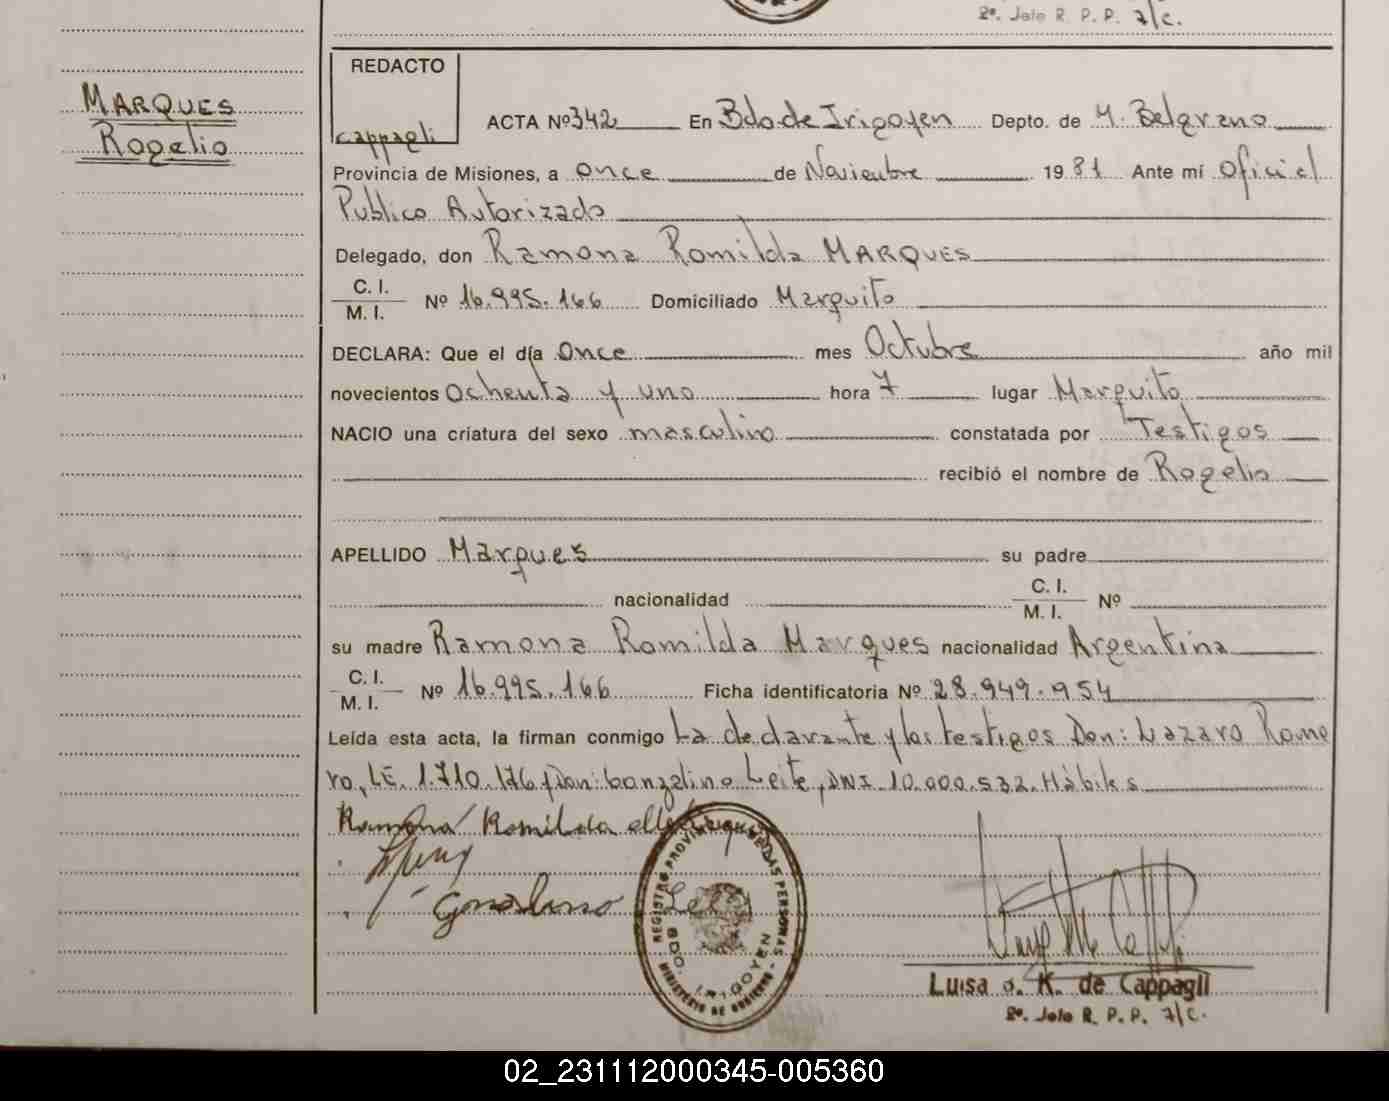 2º. Jefe R. P. P. 7/C.
MARQUES
Rogelio
REDACTO
Cappagli
ACTA Nº 342 En Bdo de Irigoyen Depto. de M. Belgrano
Provincia de Misiones, a once de Noviembre 1981 Ante mí Oficial
Publico Autorizado
Delegado, don Ramona Romilda MARQUES
C. I.
M. I. Nº 16.995.166 Domiciliado Marquito
DECLARA: Que el día Once mes Octubre año mil
novecientos Ochenta y uno hora 7 lugar Marquito
NACIO una criatura del sexo masculino constatada por Testigos
recibió el nombre de Rogelio
APELLIDO Marques su padre
nacionalidad C. I.
M. I. Nº
su madre Ramona Romilda Marques nacionalidad Argentina
C. I.
M. I. Nº 16.995.166 Ficha identificatoria Nº 28.949.954
Leída esta acta, la firman conmigo La declarante y los testigos Don: Lazaro Rome
ro, LE. 1.710.176 y Don: Gonzalino Leite, DNI 10.000.532. Hábiles
Ramona Romilda
REGISTRO PROVINCIAL DE LAS PERSONAS
BDO. IRIGOYEN
MINISTERIO DE GOBIERNO
Luisa de Cappagli
2º. Jefe R. P. P. 7/C.
02_231112000345-005360